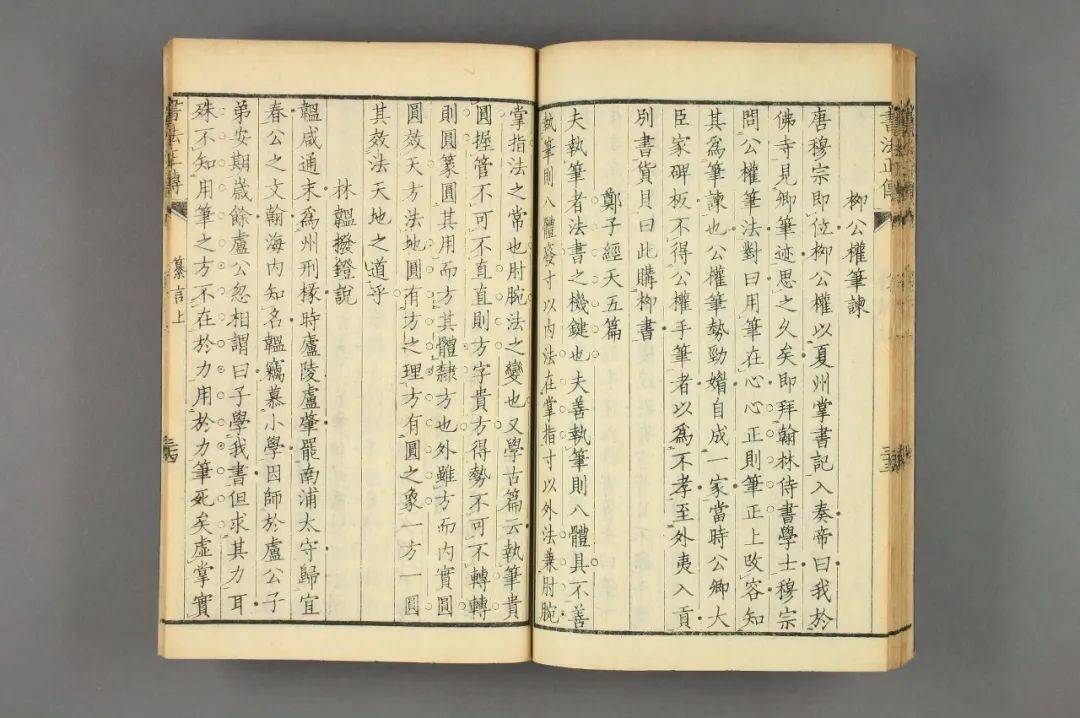 書法正傳
柳公權筆諫
唐穆宗即位柳公權以夏州掌書記入奏帝曰我於
佛寺見卿筆迹思之久矣即拜翰林侍書學士穆宗
問公權筆法對曰用筆在心心正則筆正上改容知
其爲筆諫也公權筆勢勁媚自成一家當時公卿大
臣家碑板不得公權手筆者以爲不孝至外夷入貢
別書貨貝曰此購柳書
鄭子經天五篇
夫執筆者法書之機鍵也夫善執筆則八體具不善
執筆則八體廢寸以內法在掌指寸以外法兼肘腕
掌指法之常也肘腕法之變也又學古篇云執筆貴
圓握管不可不直直則方字貴方得勢不可不轉轉
則圓篆圓其用而方其體隸方也外雖方而內實圓
圓效天方法地圓有方之理方有圓之象一方一圓
其效法天地之道乎
林韞撥鐙說
韞咸通末爲州刑掾時廬陵盧肇罷南浦太守歸宜
春公之文翰海內知名韞竊慕小學因師於盧公子
弟安期歲餘盧公忽相謂曰子學我書但求其力耳
殊不知用筆之方不在於力用於力筆死矣虛掌實
書法正傳
纂言上